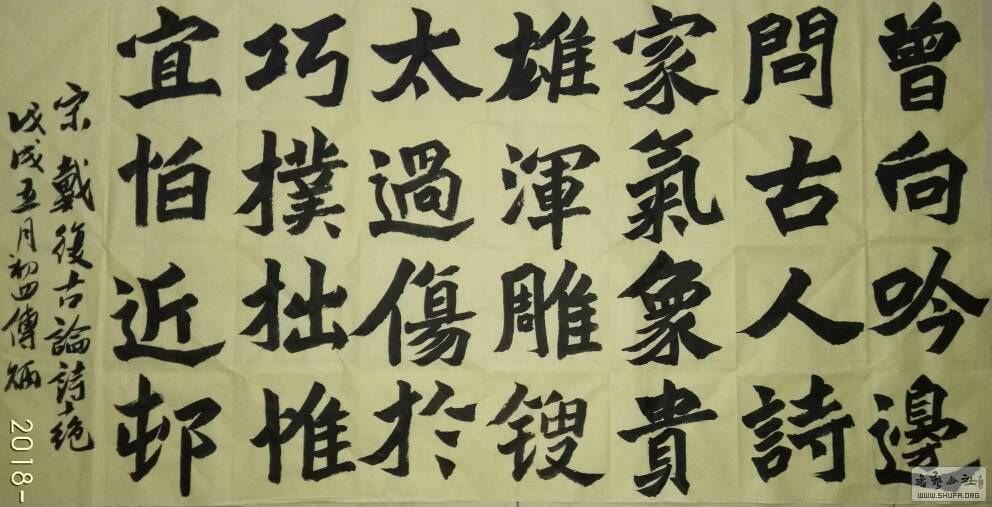 曾向吟邊
問古人詩
家氣象貴
雄渾雕锼
太過傷於
巧撲拙惟
宜怕近邨
宋戴復古論詩十絕
戊戌五月初四傅炳
2018-
WWW.SHUFA.ORG